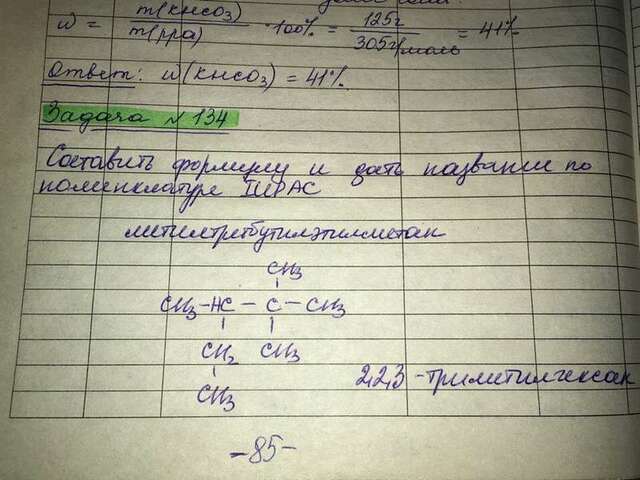 ω = m(KHCO₃) / m(рра) · 100% = 125г / 305г/моль = 41%
Ответ: ω(KHCO₃) = 41%
Задача №134
Составить формулу и дать название по
номенклатуре IUPAC
метилтретбутилэтилметан
CH₃
|
CH₃ – HC – C – CH₃
| |
CH₂ CH₃
|
CH₃
2,2,3 - триметилгексан
-85-